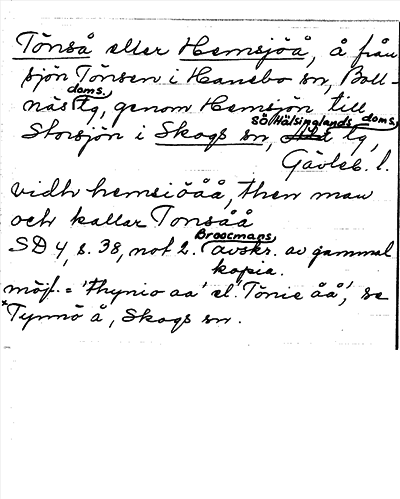 Tönså eller Hemsjöå, å från
sjön Tönsen i Hanebo sn, Boll-
näs doms. tg, genom Hemsjön till
Storsjön i Skogs sn, Sö Hälsinglands doms. tg,
Gävleb. l.
vidh hemsiöåå, then man
och kallar Tonsåå
SD 4, s. 38, not 2. Broocmans avskr. av gammal
kopia.
möjl. = 'thynio aa' el. 'Tönie åå', se
*Tynnö å, Skogs sn.